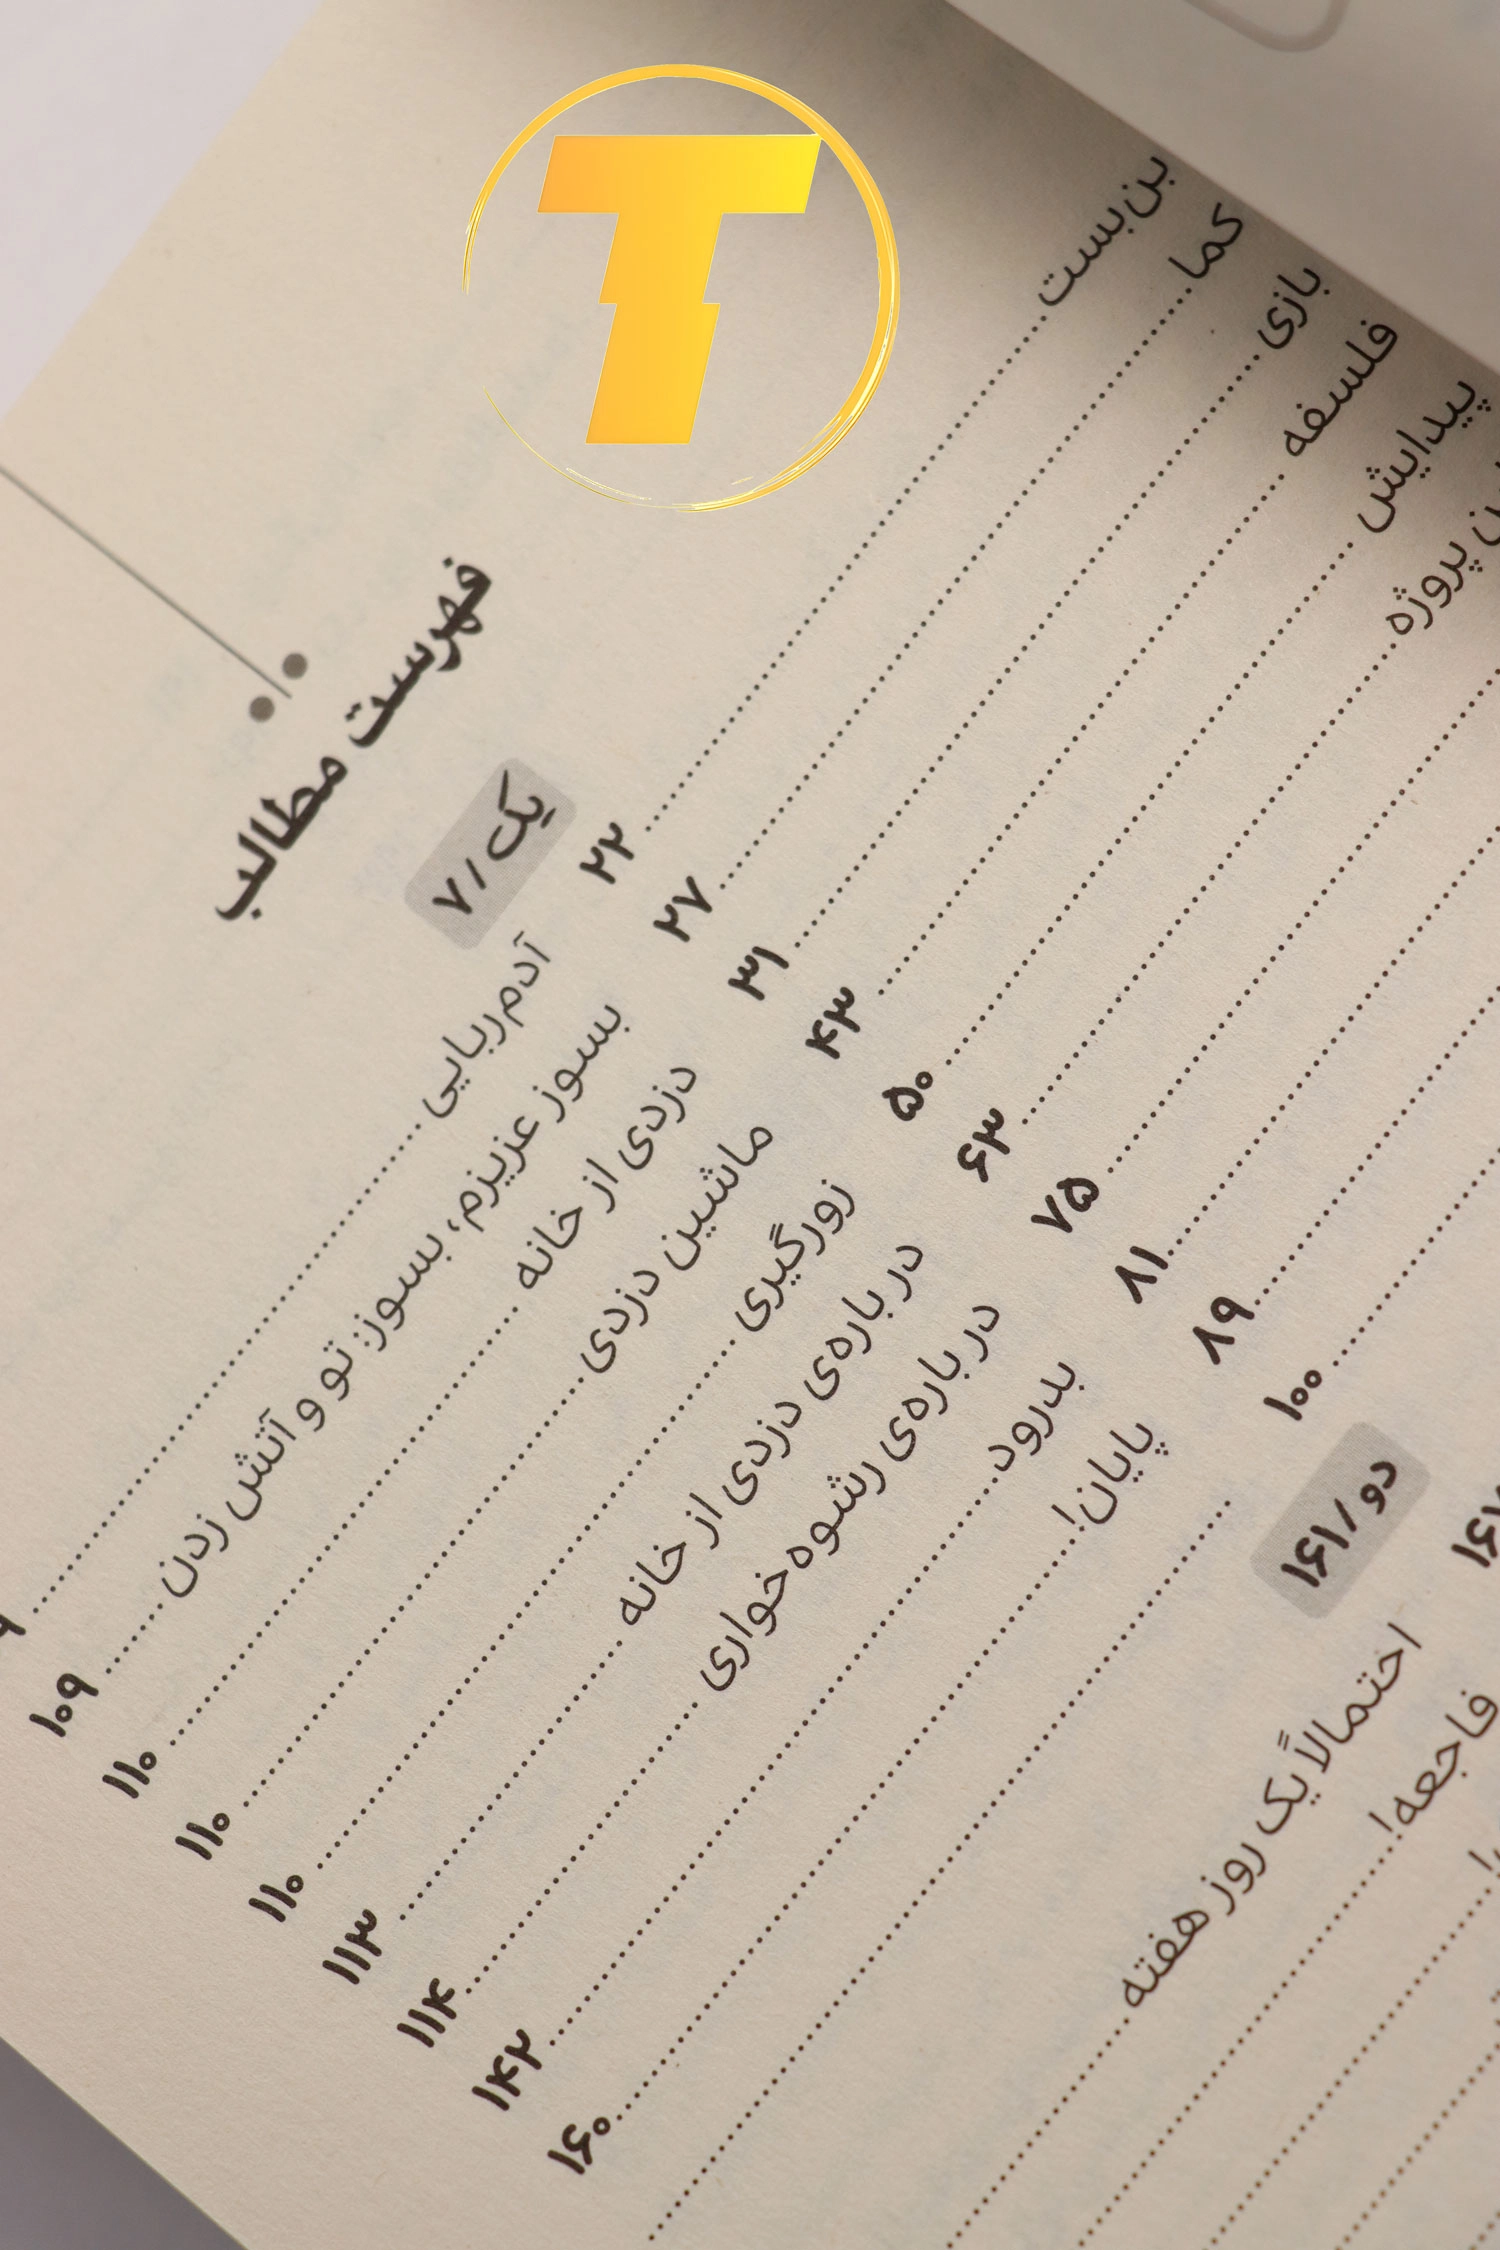 T
فهرست مطالب
یک / ۷
بن‌بست ۲۲
کما ۲۷
بازی ۳۱
فلسفه ۴۳
پیدایش ۵۰
پروژه ۶۳
۷۵
۸۱
۸۹
۱۰۰
آدم‌ربایی
بسوز عزیزم، بسوز: تو و آتش زدن ۱۰۹
دزدی از خانه ۱۱۰
ماشین دزدی ۱۱۰
زورگیری ۱۱۰
در باره‌ی دزدی از خانه ۱۱۳
در باره‌ی رشوه‌خواری ۱۱۴
بدرود ۱۴۲
پایان! ۱۶۰
دو / ۱۶۱
احتمالاً یک روز هفته
فاجعه!